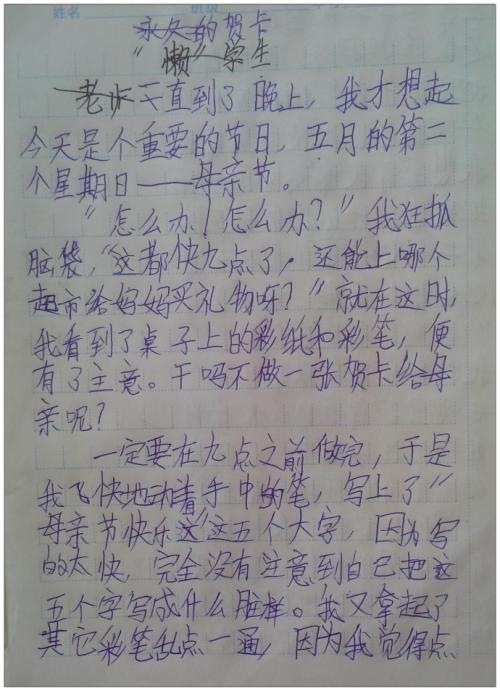 姓名 班级
永久的贺卡
“懒”学生
一直到了晚上，我才想起
今天是个重要的节日，五月的第二
个星期日——母亲节。
“怎么办！怎么办？”我狂抓
脑袋，“这都快九点了，还能上哪个
超市给妈妈买礼物呀？”就在这时，
我看到了桌子上的彩纸和彩笔，便
有了主意。干吗不做一张贺卡给母
亲呢？
一定要在九点之前做完，于是
我飞快地动着手中的笔，写上了“
母亲节快乐”这五个大字，因为写
的太快，完全没有注意到自已把这
五个字写成什么脏样。我又拿起了
其它彩笔乱点一通，因为我觉得点